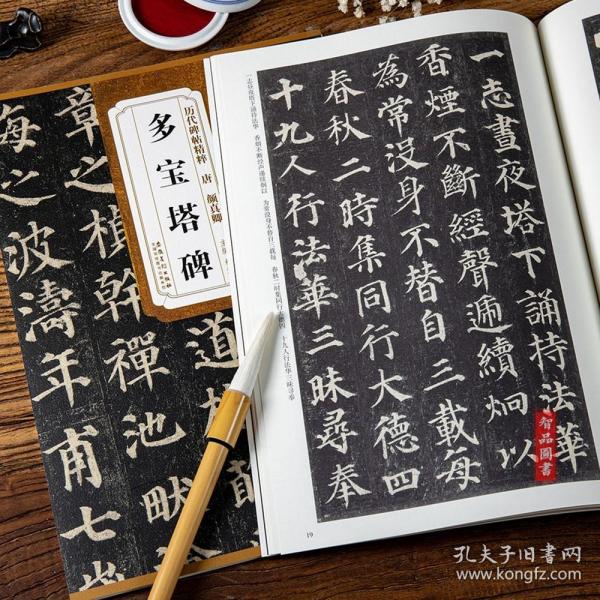 一志晝夜塔下誦持法華
香煙不斷經聲遞續炯以
為常沒身不替自三載每
春秋二時集同行大德四
十九人行法華三昧尋奉
一志昼夜塔下诵持法华 香烟不断经声递续炯以 为常没身不替自三载每 春秋二时集同行大德四 十九人行法华三昧寻奉
19
智品圖書
历代碑帖精粹 唐 颜真卿
多宝塔碑
道
章之楨幹禪池畎
海之波濤年甫七
孔夫子旧书网
www.kongfz.com